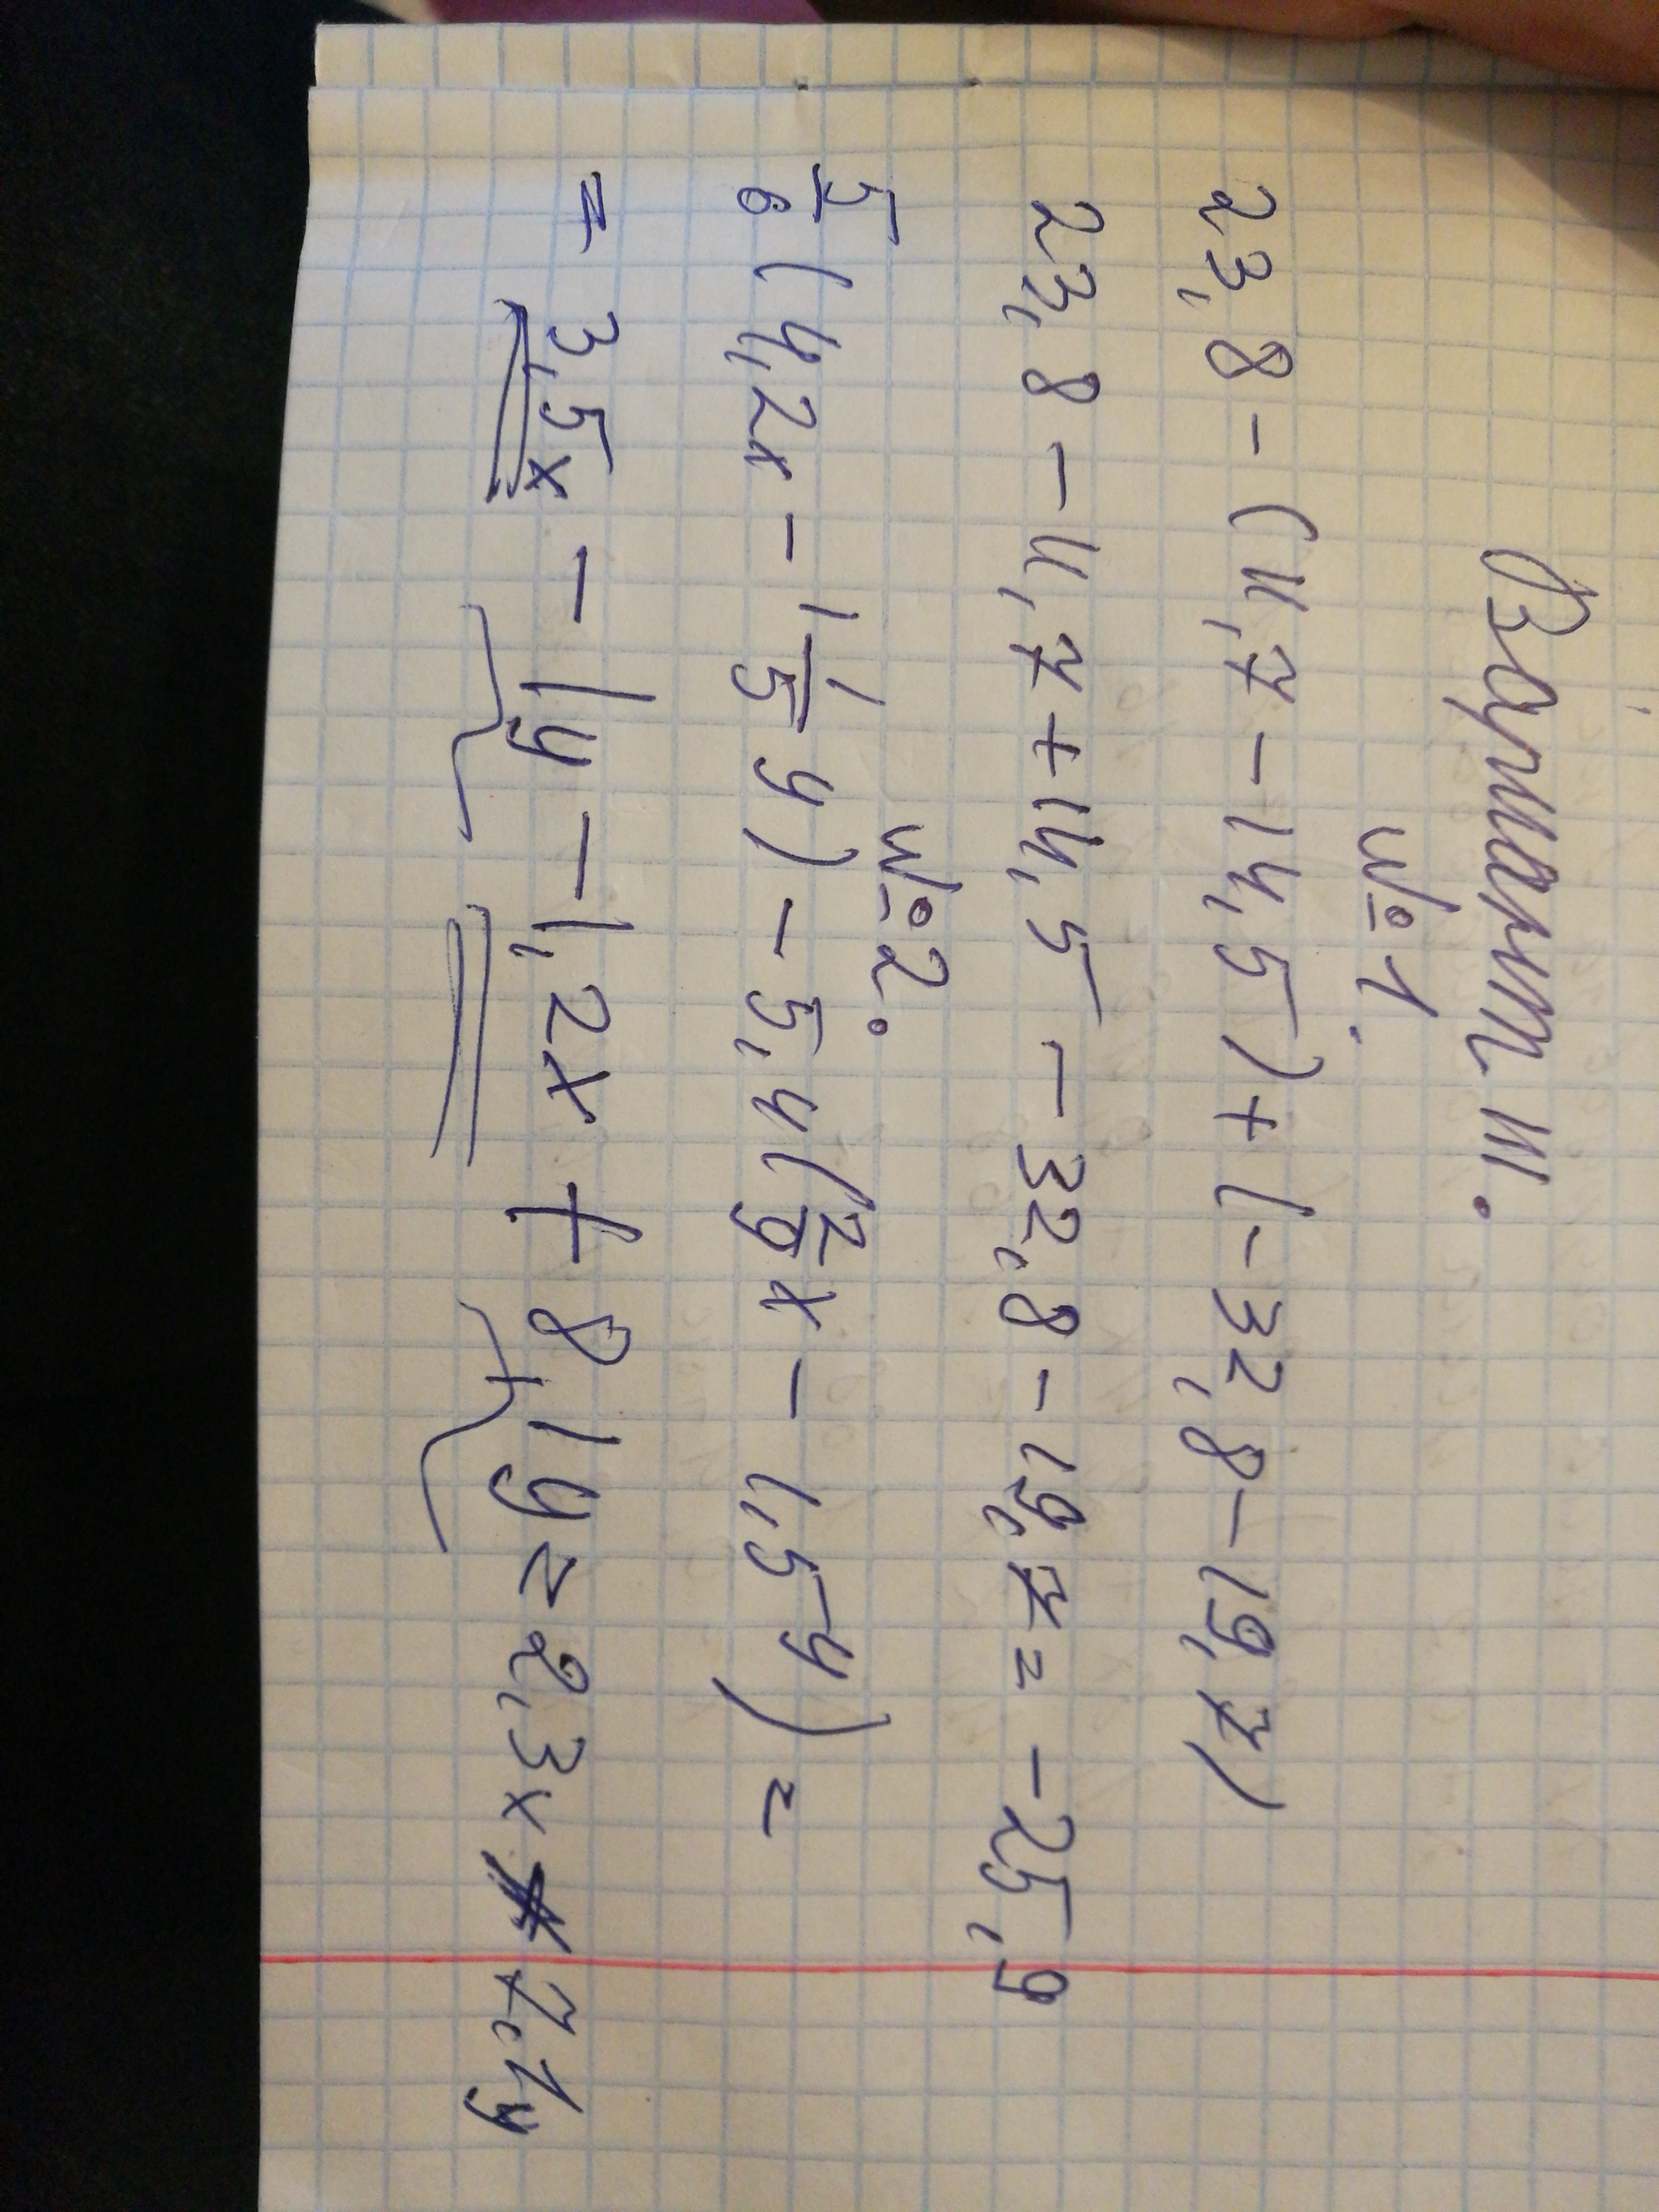 Вариант III.
№1.
23,8 - (11,7 - 14,5) + (-32,8 - 19,7)
23,8 - 11,7 + 14,5 - 32,8 - 19,7 = -25,9
№2.
5/6 (4,2x - 1 1/5 y) - 5,4 (2/9 x - 1,5y) =
= 3,5x - 1y - 1,2x + 8,1y = 2,3x + 7,1y